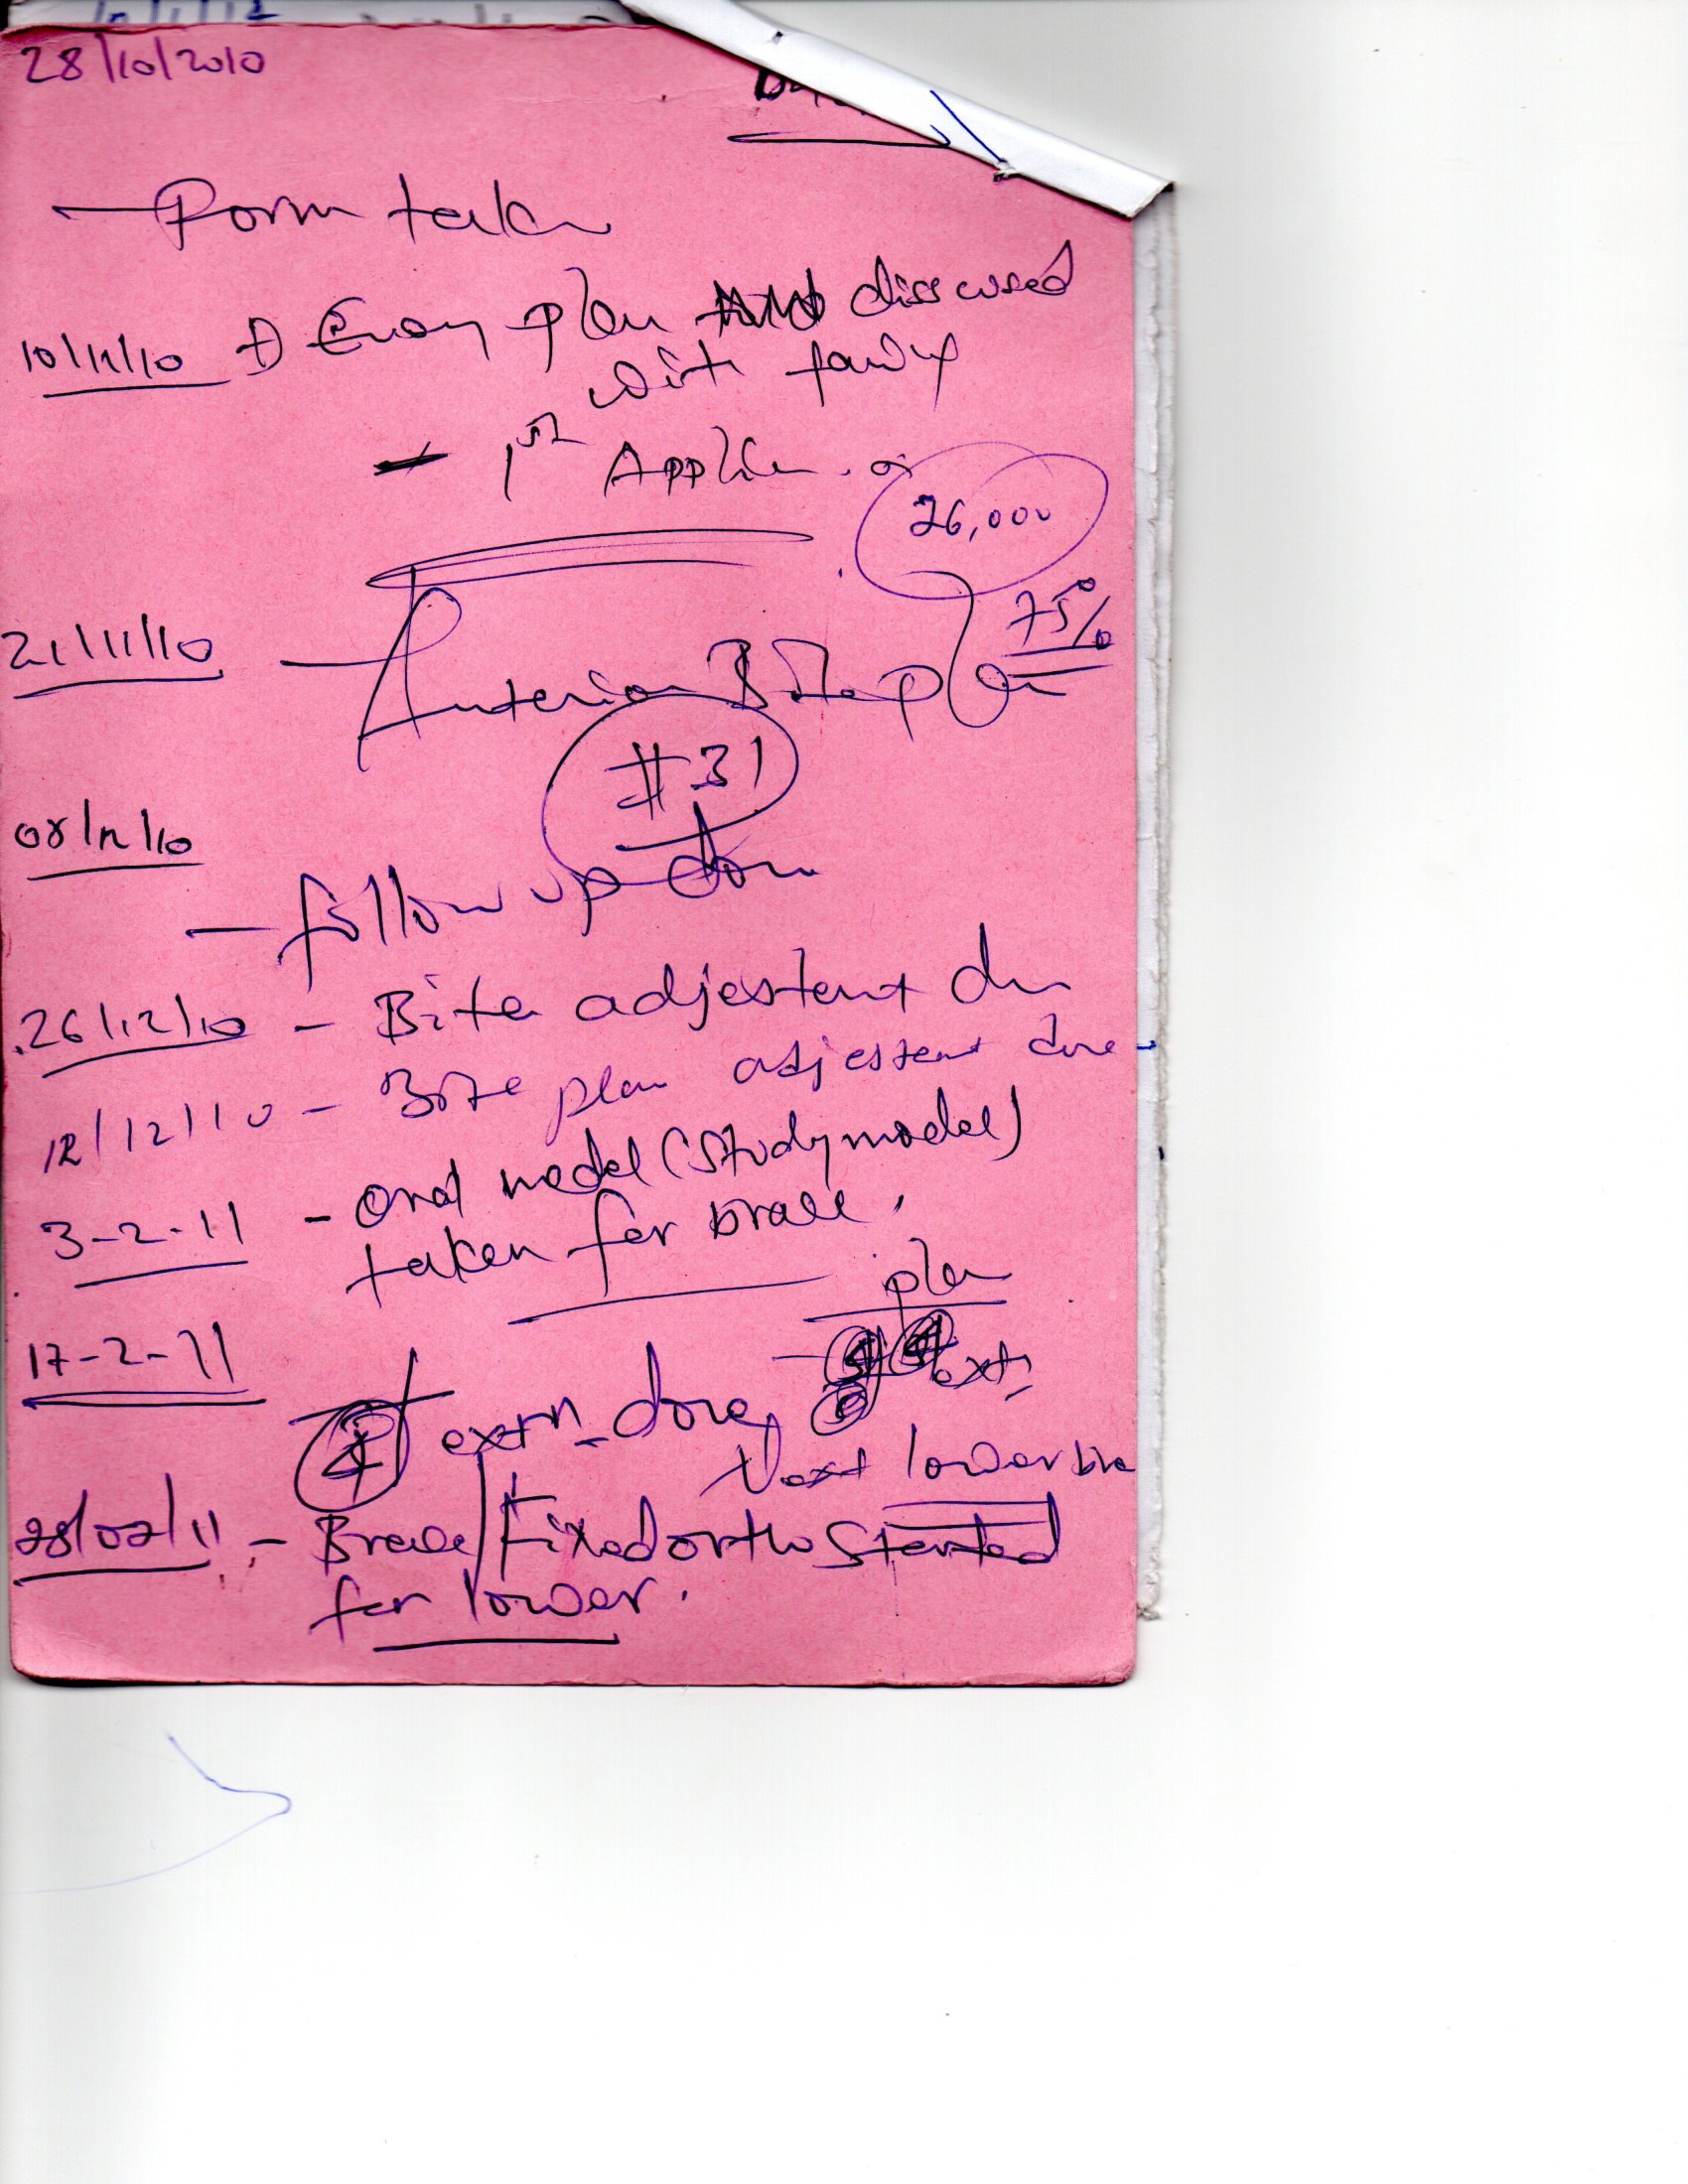 28/10/2010
- Form taken
10/11/10 Every plan discussed
with family
- 1st
26,000
75%
21/11/10 - Anterior Bite plan
#31
08/12/10
- follow up done
26/12/10 - Bite adjestent done
12/12/10 - Bite plan adjestent done
3-2-11 - oral model (study model)
taken for brace.
plan
17-2-11
4 extn done, extn
Next lower
28/02/11 - Brace/Fixed ortho started
for lower.